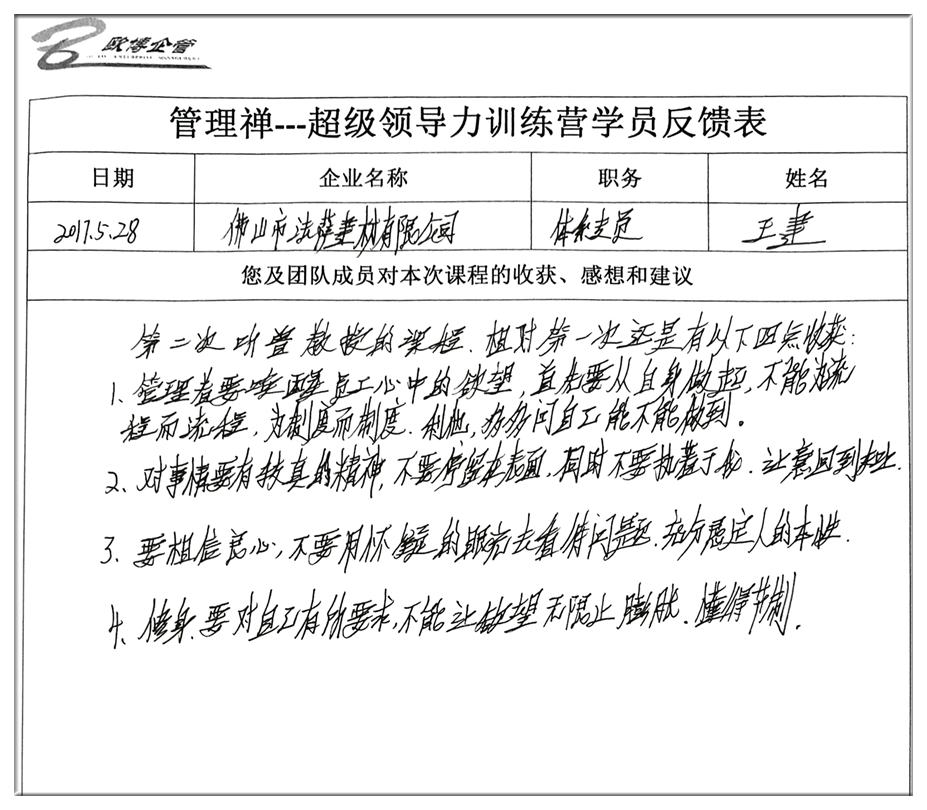 欧博企管
管理禅---超级领导力训练营学员反馈表
日期 企业名称 职务 姓名
2017.5.28 佛山市法萨建材有限公司 体系专员 王建
您及团队成员对本次课程的收获、感想和建议
第二次听曾教授的课程.相对第一次还是有以下四点收获:
1、管理者要唤醒员工心中的欲望,首先要从自身做起,不能为流
程而流程,为制度而制度.利他,多多问自己能不能做到。
2、对事情要有较真的精神,不要停留在表面,同时不要执著于心.让意回到
3、要相信良心,不要用怀疑的眼光去看待问题.充分肯定人的本性.
4、修身.要对自己有所要求,不能让欲望无限止膨胀.懂得节制.